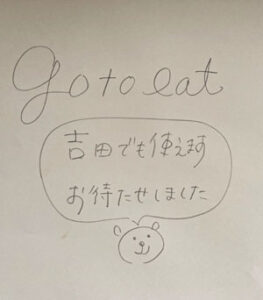 go to eat
吉田でも使えます
お待たせしました